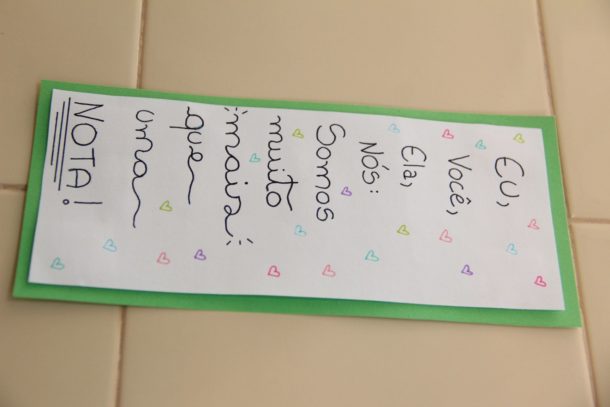 EU,
Você,
Ela,
Nós:
Somos
muito
mais
que
uma
NOTA!